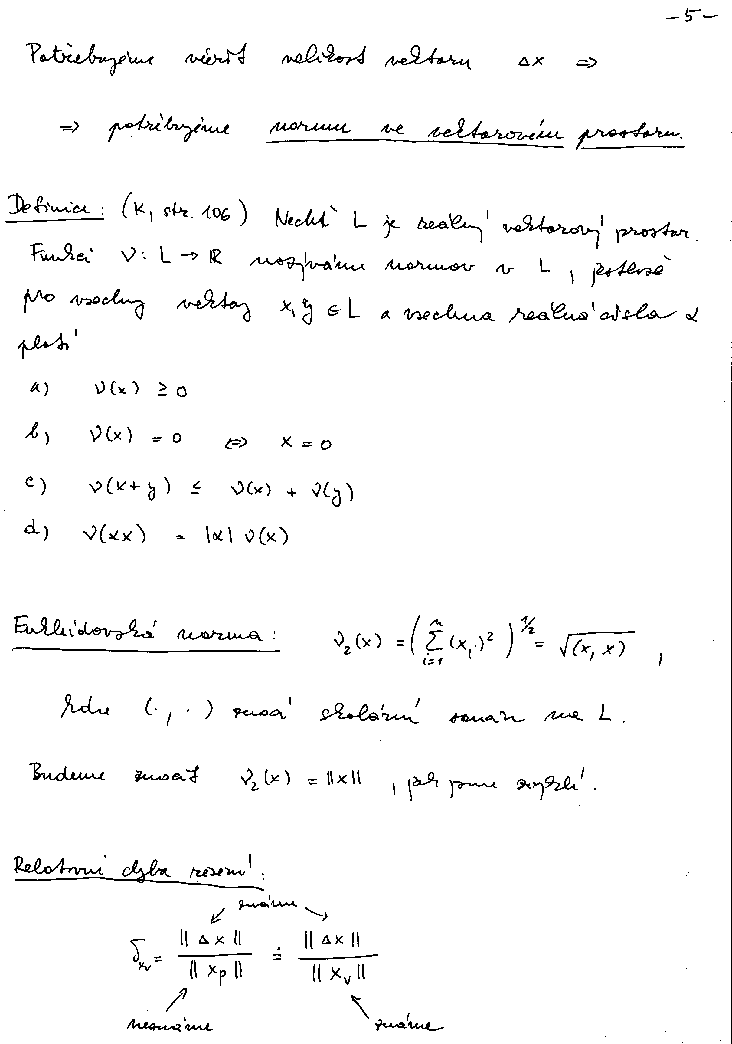 -5-
Potřebujeme měřit velikost vektoru Δx ⇒
⇒ potřebujeme normu ve vektorovém prostoru.
Definice: (K, str. 106) Nechť L je reálný vektorový prostor.
Funkci ν: L → ℝ nazýváme normou v L, jestliže
pro všechny vektory x, y ∈ L a všechna reálná čísla α
platí
a) ν(x) ≥ 0
b) ν(x) = 0 ⇔ x = 0
c) ν(x+y) ≤ ν(x) + ν(y)
d) ν(αx) = |α| ν(x)
Eukleidovská norma: ν₂(x) = (∑ᵢ₌₁ⁿ (xᵢ)²)^½ = √(x, x) ,
kde (·, ·) značí skalární součin na L.
Budeme značit ν₂(x) = ||x|| , jak jsme zvyklí.
Relativní chyba řešení:
známe
δ_xv = ||Δx|| / ||x_p|| ≐ ||Δx|| / ||x_v||
neznáme známe